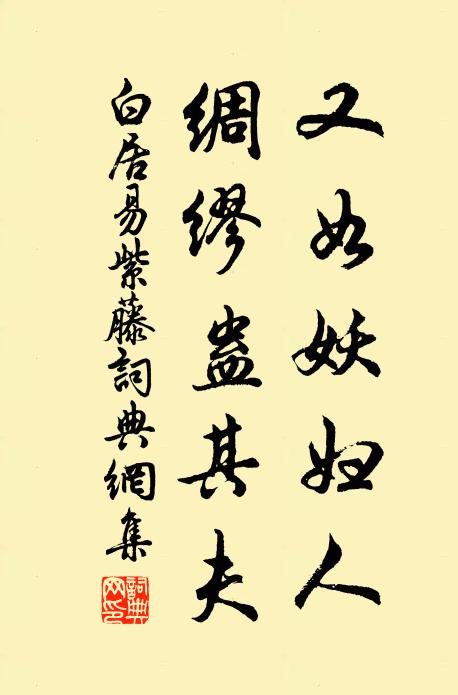 又如妖妇人
绸缪蛊其夫
白居易紫藤詞典網集
詞典網印